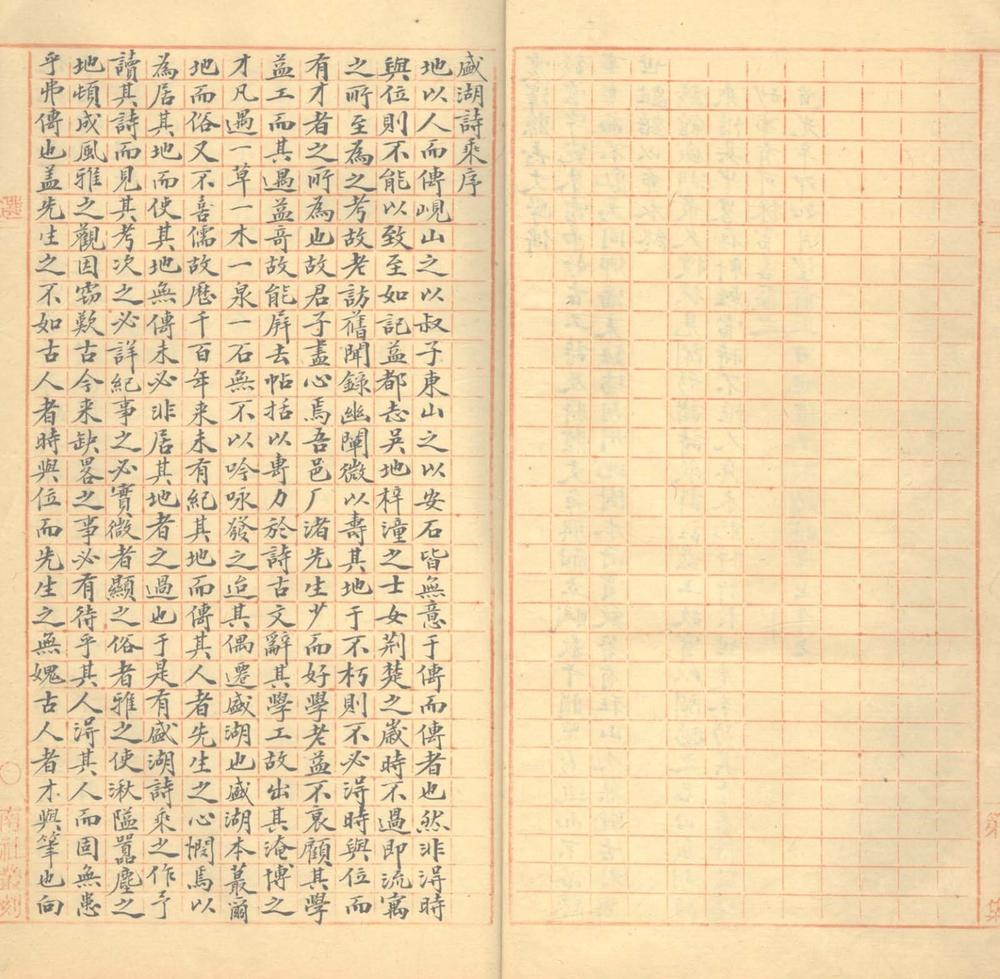 盛湖詩乘序
地以人而傳峴山之以叔子東山之以安石皆無意于傳而傳者也然非得時
與位則不能以致至如記益都志吳地梓潼之士女荊楚之歲時不過即流寓
之所至為之考故老訪舊聞錄幽闡微以壽其地于不朽則不必得時與位而
有才者之所為也故君子盡心焉吾邑厂渚先生少而好學老益不衰顧其學
益工而其遇益奇故能屏去帖括以專力於詩古文辭其學工故出其淹博之
才凡遇一草一木一泉一石無不以吟咏發之迨其偶遷盛湖也盛湖本蕞爾
地而俗又不喜儒故歷千百年來未有紀其地而傳其人者先生之心惘焉以
為居其地而使其地無傳未必非居其地者之過也于是有盛湖詩乘之作予
讀其詩而見其考次之必詳紀事之必實微者顯之俗者雅之使湫隘囂塵之
地頓成風雅之觀因竊歎古今来缺畧之事必有待乎其人得其人而固無患
乎弗傳也盖先生之不如古人者時與位而先生之無媿古人者才與筆也向
選
〇南社叢刻